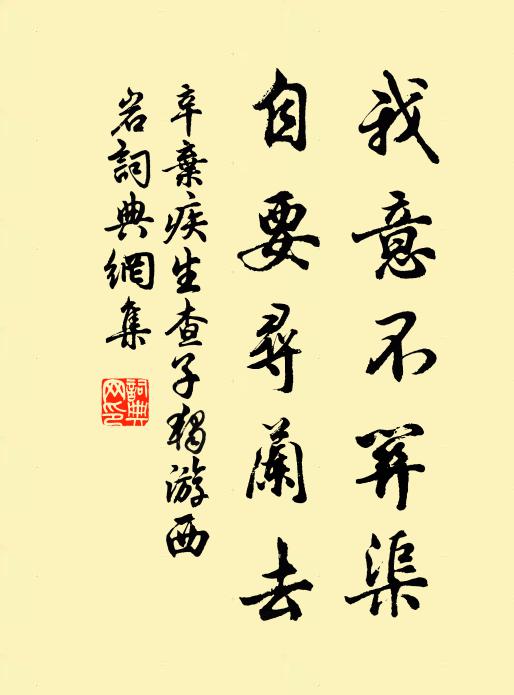 我意不關渠
自要尋蘭去
辛棄疾生查子獨游西
岩詞典網集
詞典
网印